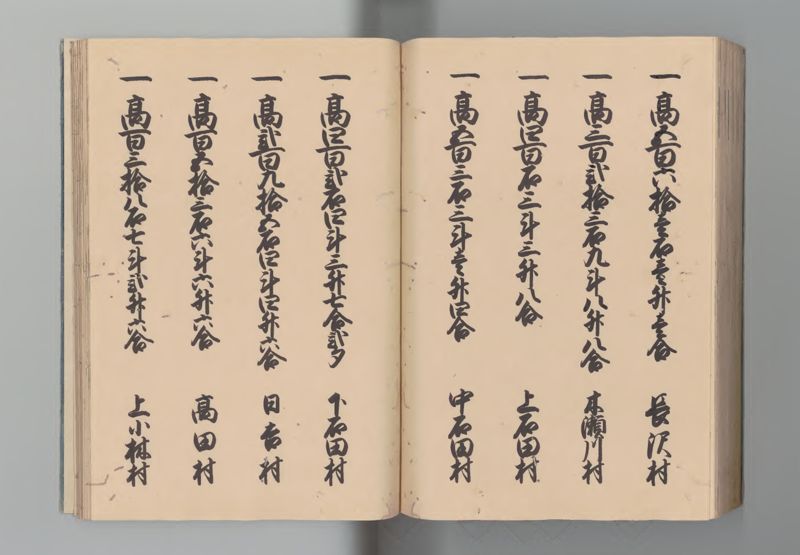 一 高五百六拾壱石壱升壱合 長沢村
一 高三百弐拾三石九斗八升八合 木瀬川村
一 高四百石三斗三升八合 上石田村
一 高五百三石三斗壱升四合 中石田村
一 高四百弐石四斗三升七合弐夕 下石田村
一 高弐百九拾五石四斗四升六合 日吉村
一 高百五拾三石六斗六升六合 高田村
一 高百三拾八石七斗弐升六合 上小林村